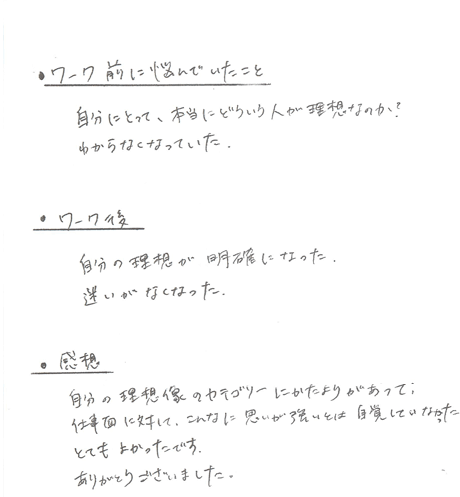 • ワーク前に悩んでいたこと
自分にとって、本当にどういう人が理想なのか?
わからなくなっていた.
• ワーク後
自分の理想が明確になった.
迷いがなくなった.
• 感想
自分の理想像のカテゴリーにかたよりがあって;
仕事面に対して、こんなに思いが強いとは自覚していなかった
とてもよかったです.
ありがとうございました。